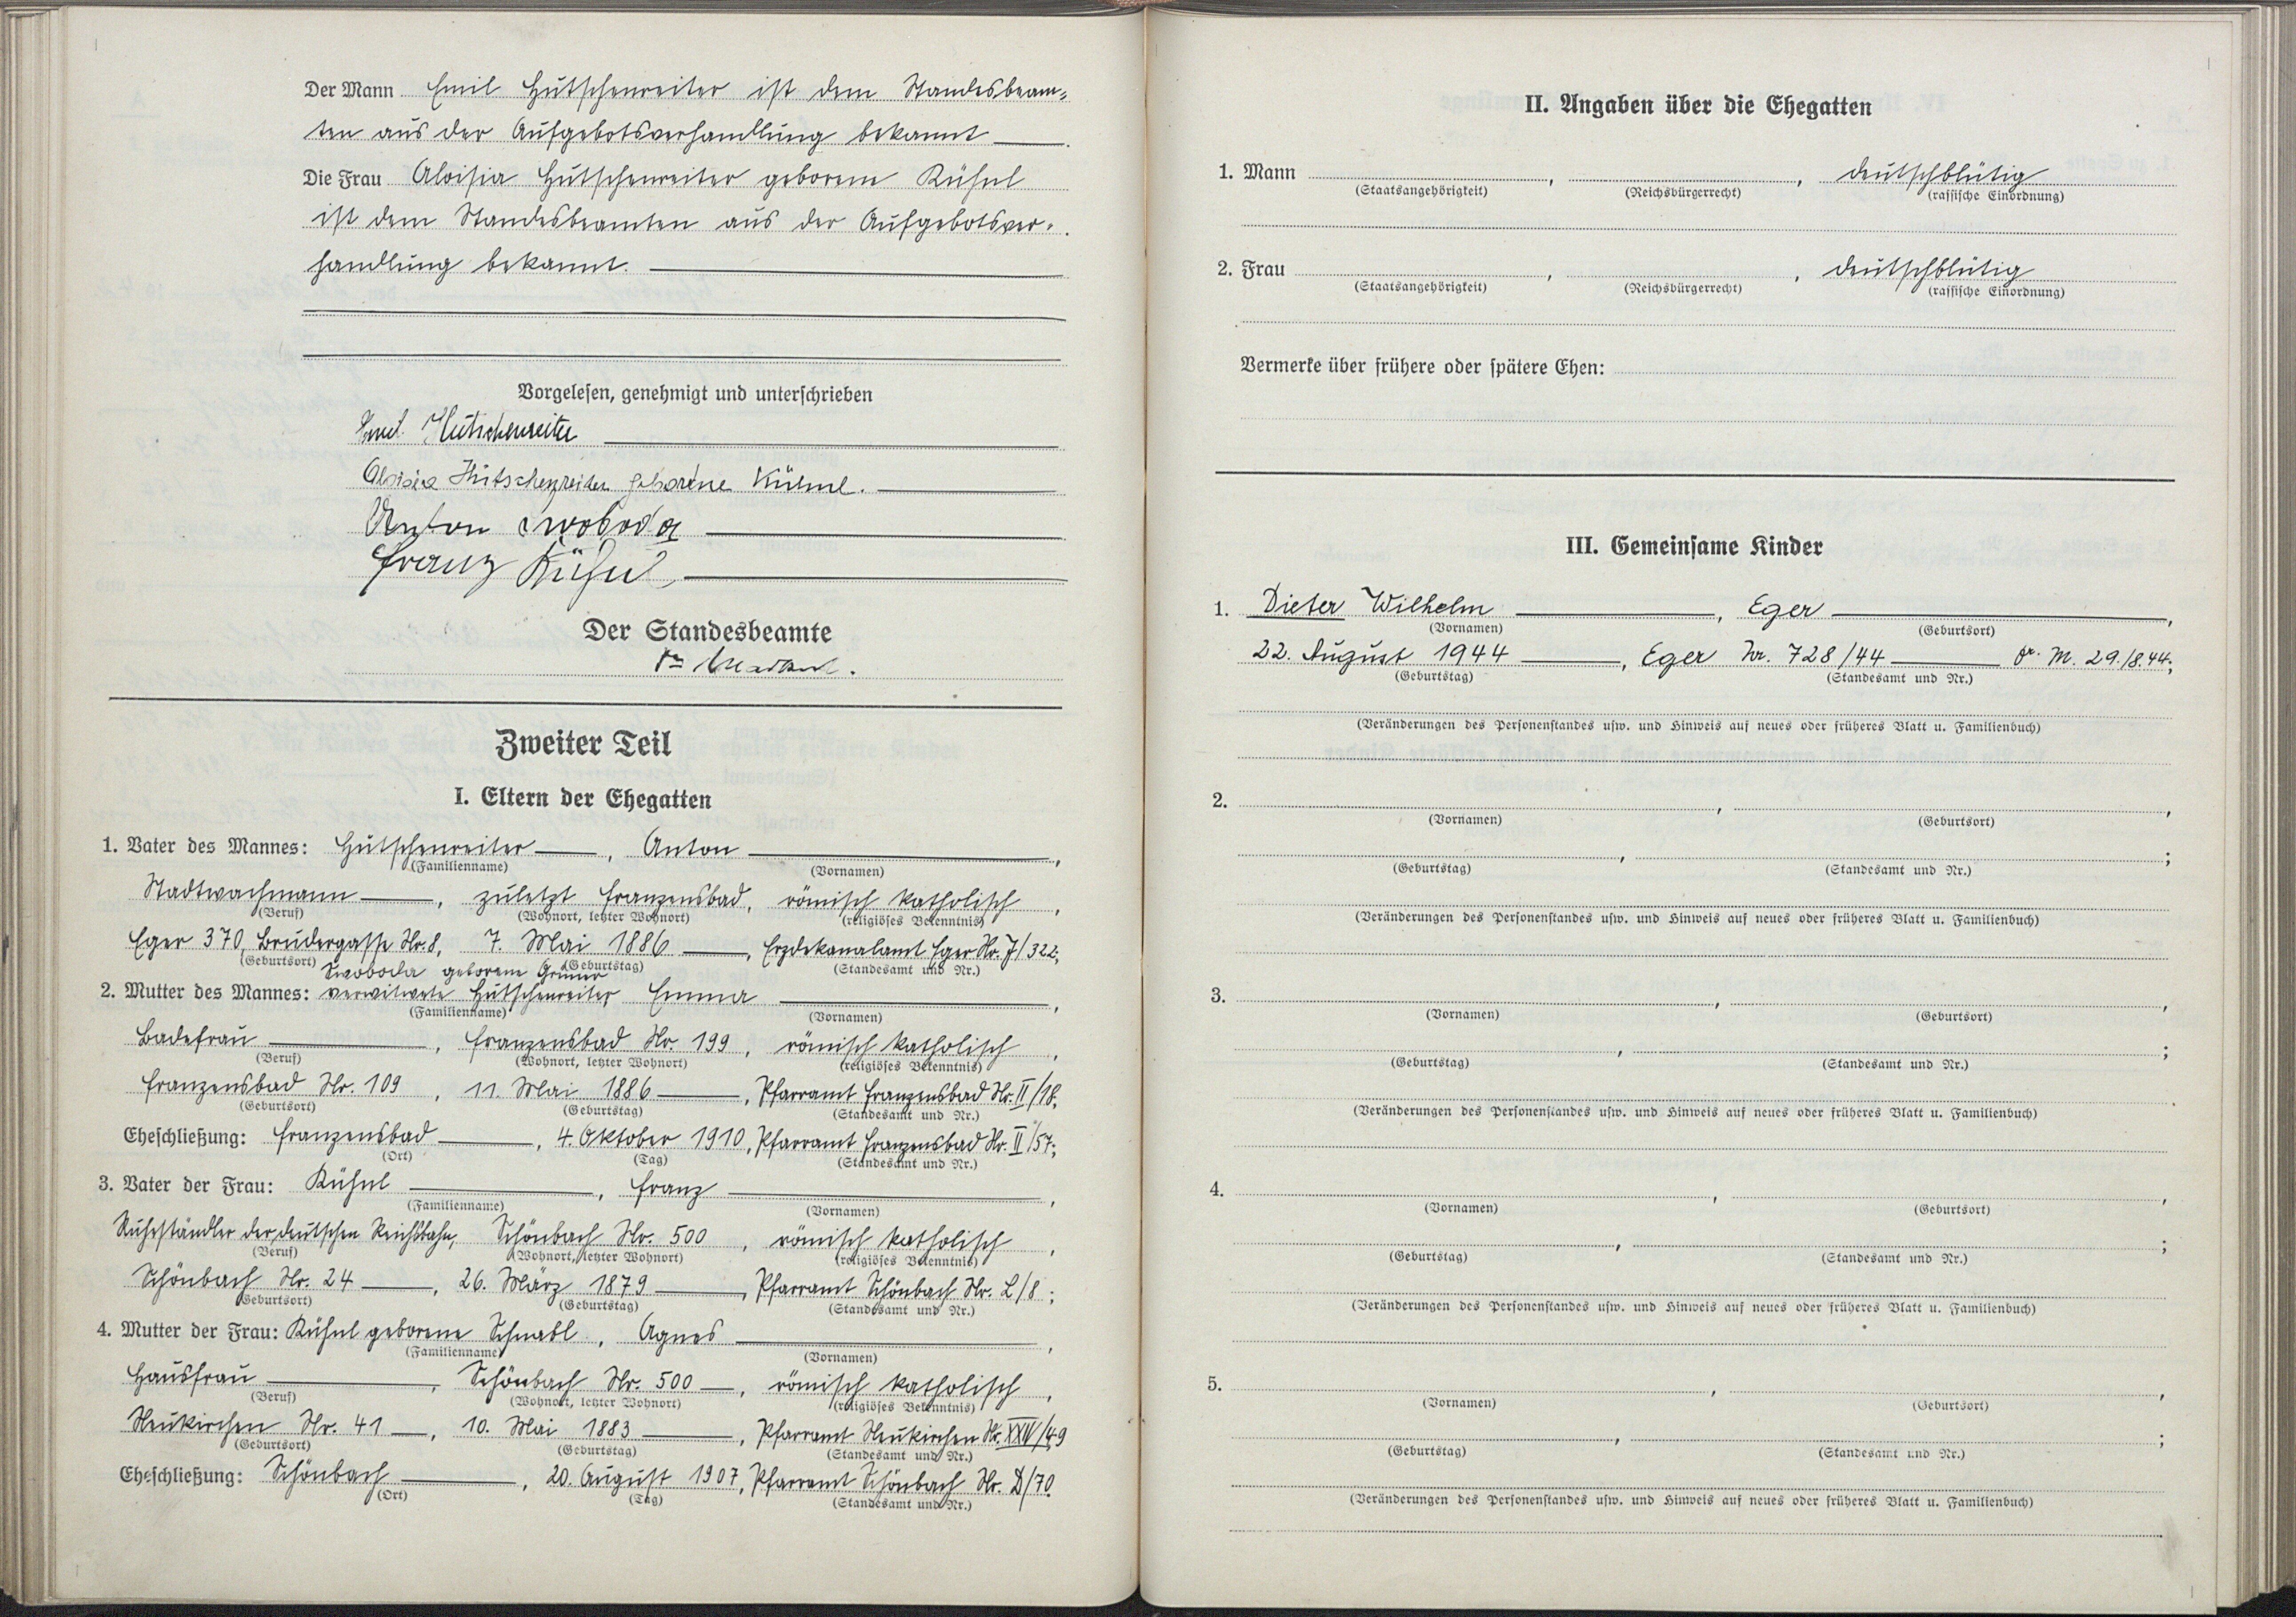 Der Mann Emil Hutschenreiter ist dem Standesbeam-
ten aus der Aufgebotsverhandlung bekannt
Die Frau Aloisia Hutschenreiter geborene Kühnl
ist dem Standesbeamten aus der Aufgebotsver-
handlung bekannt.
Vorgelesen, genehmigt und unterschrieben
Emil Hutschenreiter
Aloisia Hutschenreiter geborene Kühnl.
Anton Swoboda
Franz Kühnl
Der Standesbeamte
Zweiter Teil
I. Eltern der Ehegatten
1. Vater des Mannes: Hutschenreiter, Anton,
(Familienname) (Vornamen)
Stadtwachmann, zuletzt Franzensbad, römisch katholisch,
(Beruf) (Wohnort, letzter Wohnort) (religiöses Bekenntnis)
Eger 370, Brudergasse Nr. 8, 7. Mai 1886, Erzdekanalamt Eger Nr. J/322;
(Geburtsort) (Geburtstag) (Standesamt und Nr.)
Swoboda geborene Grüner
2. Mutter des Mannes: verwitwete Hutschenreiter, Emma,
(Familienname) (Vornamen)
Badefrau, Franzensbad Nr. 199, römisch katholisch,
(Beruf) (Wohnort, letzter Wohnort) (religiöses Bekenntnis)
Franzensbad Nr. 109, 11. Mai 1886, Pfarramt Franzensbad Nr. II/18.
(Geburtsort) (Geburtstag) (Standesamt und Nr.)
Eheschließung: Franzensbad, 4. Oktober 1910, Pfarramt Franzensbad Nr. II/57;
(Ort) (Tag) (Standesamt und Nr.)
3. Vater der Frau: Kühnl, Franz,
(Familienname) (Vornamen)
Ruheständler der deutschen Reichsbahn, Schönbach Nr. 500, römisch katholisch,
(Beruf) (Wohnort, letzter Wohnort) (religiöses Bekenntnis)
Schönbach Nr. 24, 26. März 1879, Pfarramt Schönbach Nr. L/8;
(Geburtsort) (Geburtstag) (Standesamt und Nr.)
4. Mutter der Frau: Kühnl geborene Schnabl, Agnes,
(Familienname) (Vornamen)
Hausfrau, Schönbach Nr. 500, römisch katholisch,
(Beruf) (Wohnort, letzter Wohnort) (religiöses Bekenntnis)
Neukirchen Nr. 41, 10. Mai 1883, Pfarramt Neukirchen Nr. XXIV/49
(Geburtsort) (Geburtstag) (Standesamt und Nr.)
Eheschließung: Schönbach, 20. August 1907, Pfarramt Schönbach Nr. D/70.
(Ort) (Tag) (Standesamt und Nr.)
II. Angaben über die Ehegatten
1. Mann , , deutschblütig
(Staatsangehörigkeit) (Reichsbürgerrecht) (rassische Einordnung)
2. Frau , , deutschblütig
(Staatsangehörigkeit) (Reichsbürgerrecht) (rassische Einordnung)
Vermerke über frühere oder spätere Ehen:
III. Gemeinsame Kinder
1. Dieter Wilhelm, Eger,
(Vornamen) (Geburtsort)
22. August 1944, Eger Nr. 728/44 Dr. M. 29./8.44;
(Geburtstag) (Standesamt und Nr.)
(Veränderungen des Personenstandes usw. und Hinweis auf neues oder früheres Blatt u. Familienbuch)
2. , ,
(Vornamen) (Geburtsort)
, ;
(Geburtstag) (Standesamt und Nr.)
(Veränderungen des Personenstandes usw. und Hinweis auf neues oder früheres Blatt u. Familienbuch)
3. , ,
(Vornamen) (Geburtsort)
, ;
(Geburtstag) (Standesamt und Nr.)
(Veränderungen des Personenstandes usw. und Hinweis auf neues oder früheres Blatt u. Familienbuch)
4. , ,
(Vornamen) (Geburtsort)
, ;
(Geburtstag) (Standesamt und Nr.)
(Veränderungen des Personenstandes usw. und Hinweis auf neues oder früheres Blatt u. Familienbuch)
5. , ,
(Vornamen) (Geburtsort)
, ;
(Geburtstag) (Standesamt und Nr.)
(Veränderungen des Personenstandes usw. und Hinweis auf neues oder früheres Blatt u. Familienbuch)